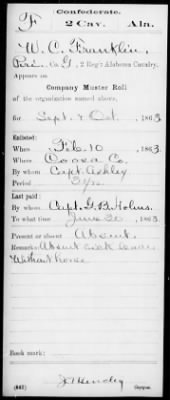 Confederate.
F 2 Cav. Ala.
W. C. Franklin,
Pvt., Co. G, 2 Reg't Alabama Cavalry.
Appears on
Company Muster Roll
of the organization named above,
for Sept. & Oct., 1863.
Enlisted:
When Feb. 10, 1863.
Where Coosa Co.
By whom Capt. Ashley
Period 3 yrs.
Last paid:
By whom Capt. G. B. Holms.
To what time June 30, 1863.
Present or absent Absent.
Remarks: Absent sick leave
Without horse
Book mark:
(642) Copyist.